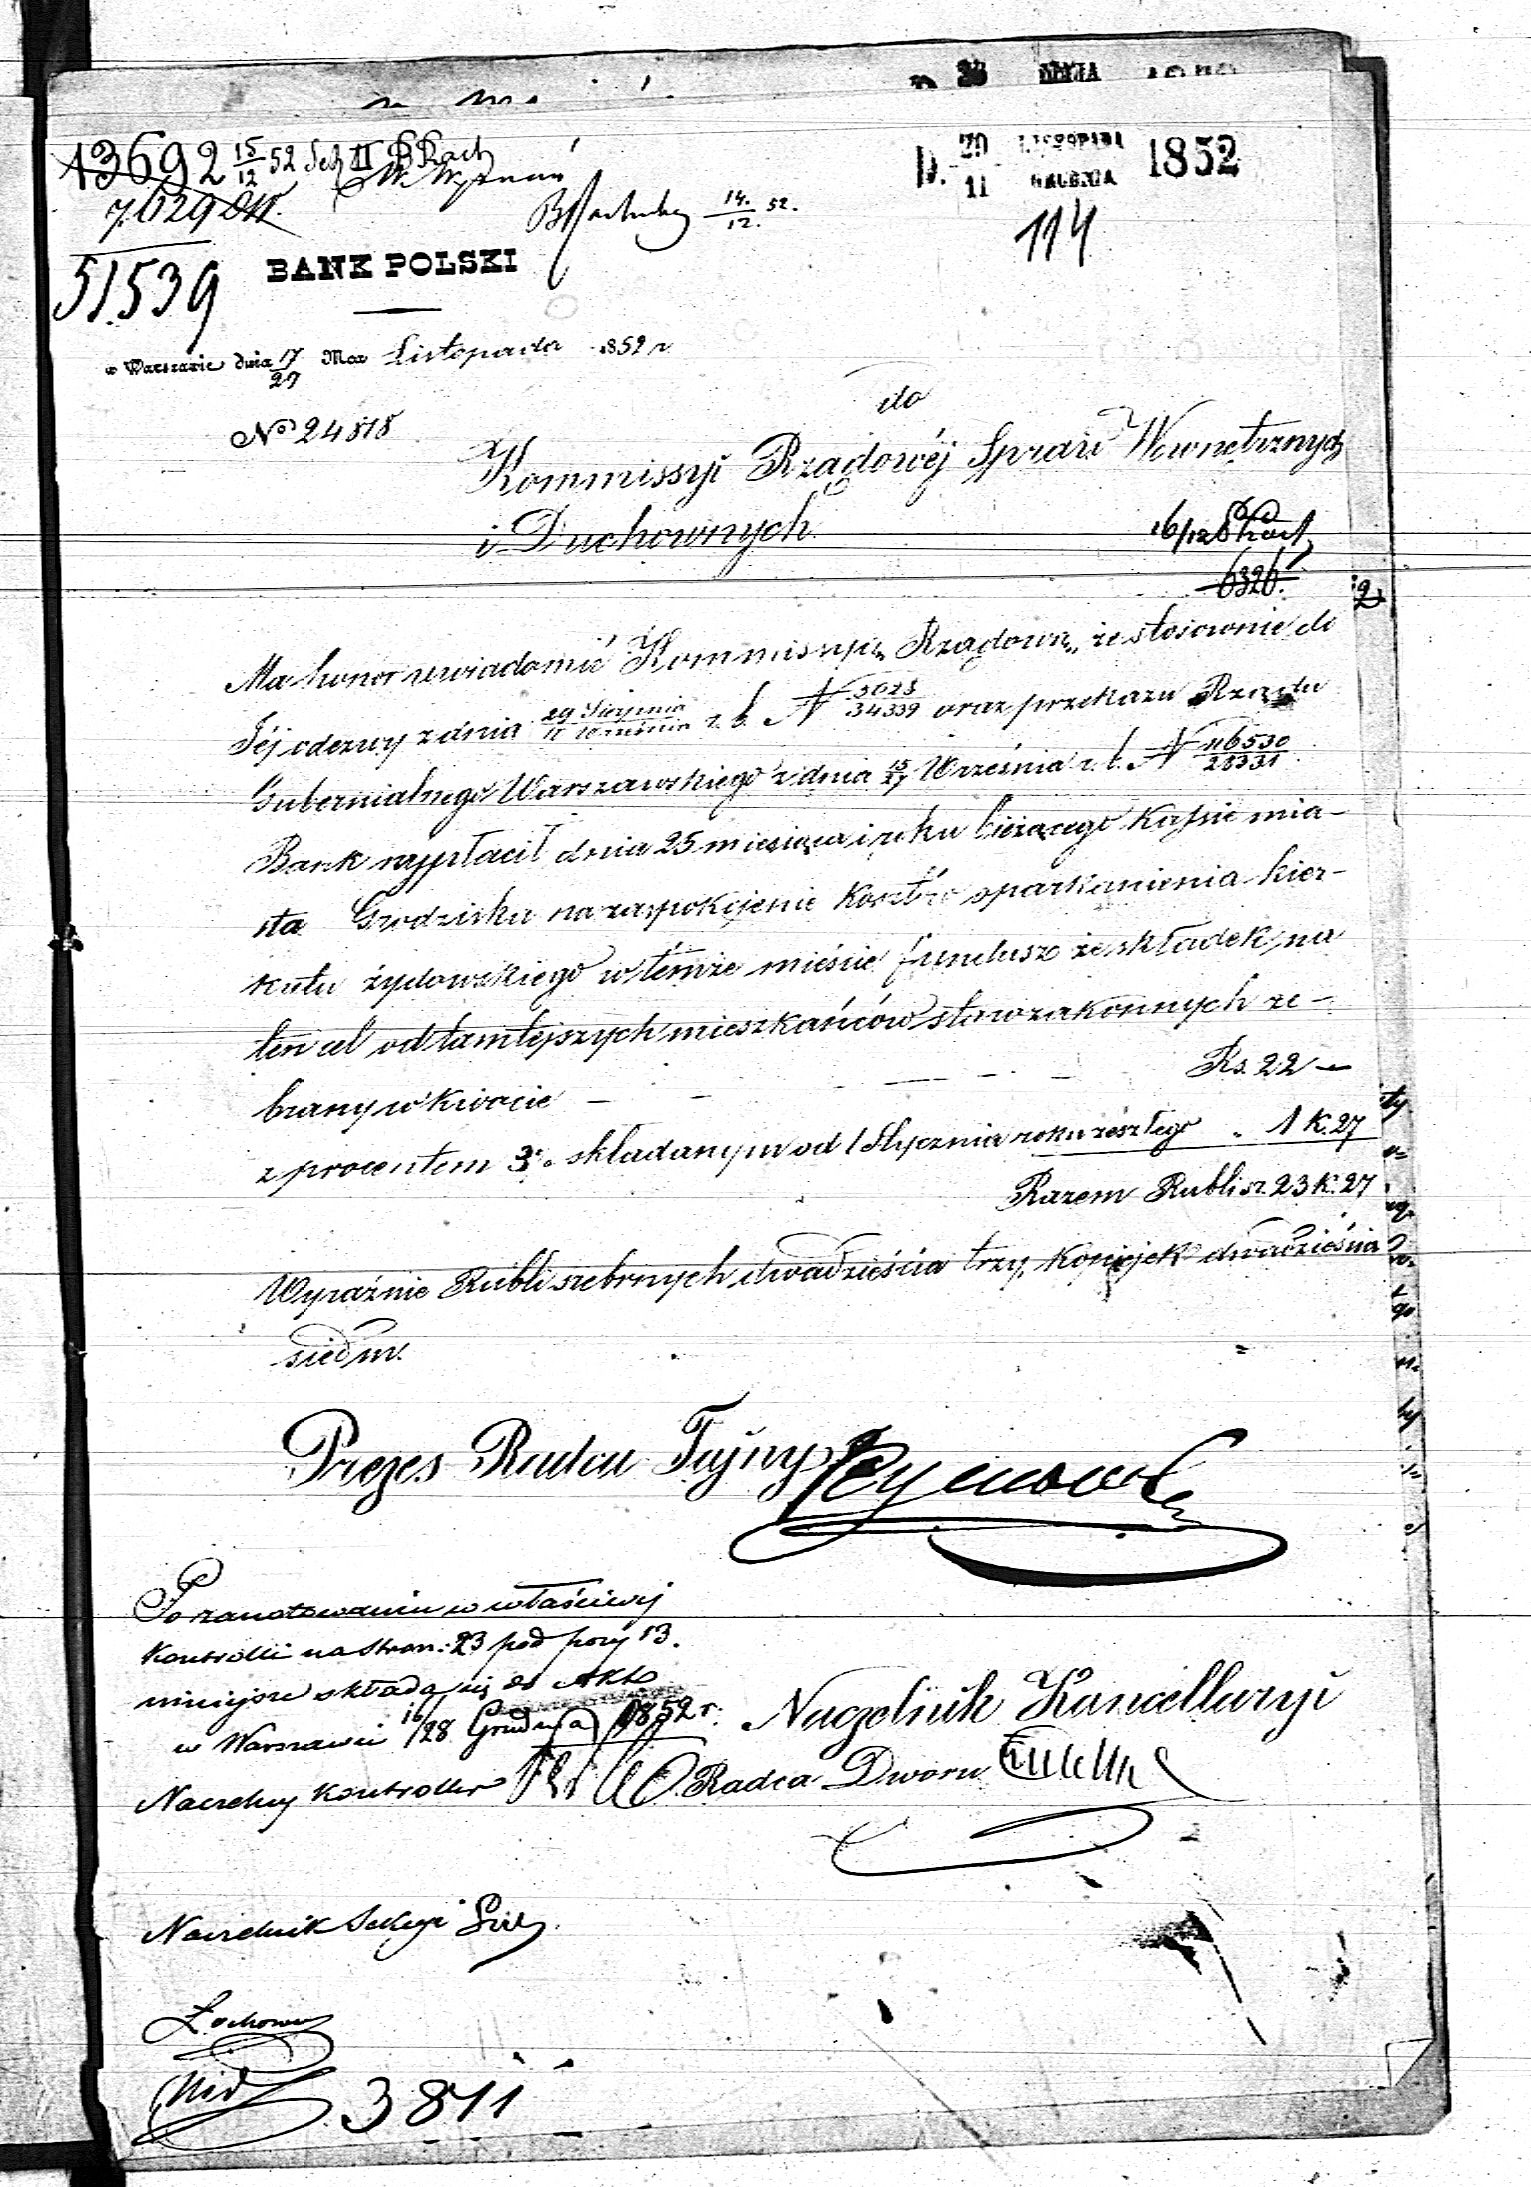 13692 15/12 52 II
7629
14/12 52.
D. 29/11 LISTOPADA GRUDNIA 1852
114
51.539
BANK POLSKI
w Warszawie dnia 17/29 Mca Listopada 1852 r.
No 24818
do
Kommissyi Rządowéj Spraw Wewnętrznych
i Duchownych
16/12
6326.
Ma honor uwiadomić Kommissyę Rządową, że stosownie do
Jéj odezwy z dnia 29 Sierpnia / Września r. b. N 5028/34339 oraz przekazu Rządu
Gubernialnego Warszawskiego z dnia 15/27 Września r. b. N 116530/28331
Bank wypłacił dnia 25 miesiąca i roku bieżącego Kassie mia-
sta Grodziska na zaspokojenie kosztów oparkanienia kier-
kutu żydowskiego w témże mieście fundusz ze składek na
ten cel od tamtejszych mieszkańców starozakonnych ze-
brany w kwocie - - - Rs. 22 -
z procentem 3% składanym od 1 Stycznia roku zeszłego . 1 K. 27
Razem Rubli sr. 23 K. 27
Wyraźnie Rubli srebrnych dwadzieścia trzy, kopiejek dwadzieścia
siedm.
Prezes Radca Tajny
Po zanotowaniu w właściwej
Kontrolli na stron: 23 pod pozy 13.
niniejsze składa się do Akt
w Warszawie 16/28 Grudnia 1852 r.
Naczelny Kontroller
Naczelnik Kancellaryi
Radca Dworu
Naczelnik Sekcyi
3811